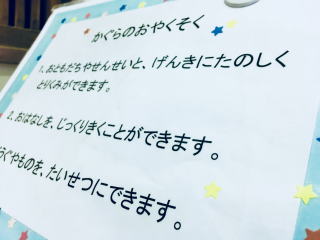 かぐらのおやくそく
1、おともだちやせんせいと、げんきにたのしく
とりくみができます。
2、おはなしを、じっくりきくことができます。
ぐやものを、たいせつにできます。